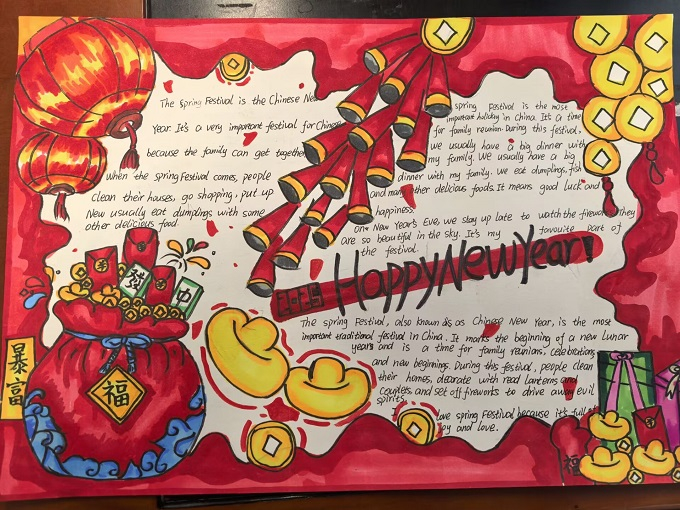 The Spring Festival is the Chinese New
Year. It's a very important festival for Chinese
because the family can get together
when the spring Festival comes, people
clean their houses, go shopping, put up
New usually eat dumplings with some
other delicious food.
spring Festival is the most
important holiday in China. It's a time
for family reunion. During this festival,
we usually have a big dinner with
my family. We usually have a big
dinner with my family. We eat dumplings, fish
and many other delicious foods. It means good luck and
happiness.
on New Year's Eve, we stay up late to watch the fireworks. They
are so beautiful in the sky. It's my favourite part of
the festival.
2025 Happy New Year!
The Spring Festival, also known as as Chinese New Year, is the most
important traditional festival in China. It marks the beginning of a new lunar
years and is a time for family reunions, celebrations
and new beginnings. During this festival, people clean
their homes, decorate with read lanterns and
Couplets, and set off fireworks to drive away evil
spirits.
I love spring Festival because it's full of
joy and love.
發
中
暴富
福